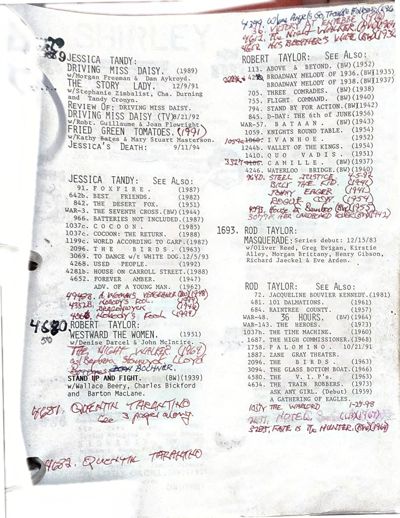 JESSICA TANDY:
DRIVING MISS DAISY. (1989)
w/Morgan Freeman & Dan Aykroyd.
THE STORY LADY. 12/9/91
w/Stephanie Zimbalist, Cha. Durning
and Tandy Cronyn.
Review Of: DRIVING MISS DAISY.
DRIVING MISS DAISY (TV)8/21/92
w/Robt. Guillaume & Joan Plowright.
FRIED GREEN TOMATOES. (1991)
w/Kathy Bates & Mary Stuart Masterson.
JESSICA's DEATH: 9/11/94
JESSICA TANDY: SEE ALSO:
91. FOXFIRE. (1987)
642b. BEST FRIENDS. (1982)
842. THE DESERT FOX. (1951)
WAR-3. THE SEVENTH CROSS.(BW)(1944)
966. BATTERIES NOT INCLUDED.(1987)
1037c. COCOON. (1985)
1037c. COCOON: THE RETURN. (1988)
1199c. WORLD ACCORDING TO GARP.(1982)
2096. THE BIRDS. (1963)
3069. TO DANCE w/E WHITE DOG.12/5/93
4268. USED PEOPLE. (1992)
4281b. HOUSE ON CARROLL STREET.(1988)
4652. FOREVER AMBER. (1947)
ADV. OF A YOUNG MAN. (1962)
NOBODY'S FOOL
4680. ROBERT TAYLOR:
WESTWARD THE WOMEN. (1951)
w/Denise Darcel & John McIntire.
THE NIGHT WALKER (1964)
w/Barbara Stanwyck, LLOYD
BOCHNER
STAND UP AND FIGHT. (BW)(1939)
w/Wallace Beery, Charles Bickford
and Barton MacLane.
4681. QUENTIN TARANTINO
4682. QUENTIN TARANTINO
ROBERT TAYLOR: SEE ALSO:
113. ABOVE & BEYOND. (BW)(1952)
BROADWAY MELODY OF 1936.(BW)(1935)
BROADWAY MELODY OF 1938.(BW)(1937)
705. THREE COMRADES. (BW)(1938)
755. FLIGHT COMMAND. (BW)(1940)
794. STAND BY FOR ACTION.(BW)(1942)
845. D-DAY: THE 6th OF JUNE.(1956)
WAR-57. BATAAN. (BW)(1943)
1059. KNIGHTS ROUND TABLE. (1954)
IVANHOE. (1952)
1246. VALLEY OF THE KINGS. (1954)
1410. QUO VADIS. (1951)
CAMILLE. (BW)(1937)
4226. WATERLOO BRIDGE.(BW)(1940)
BILLY THE KID. (1941)
JOHNNY EAGER (1942)
ROGUE COP (1954)
1693. ROD TAYLOR:
MASQUERADE: Series debut: 12/15/83
w/Oliver Reed, Greg Evigan, Kirstie
Alley, Morgan Brittany, Henry Gibson,
Richard Jaeckel & Eve Arden.
ROD TAYLOR: SEE ALSO:
72. JACQUELINE BOUVIER KENNEDY.(1981)
481. 101 DALMATIONS. (1961)
684. RAINTREE COUNTY. (1957)
WAR-48. 36 HOURS. (BW)(1964)
WAR-143. THE HEROES. (1973)
1037a. THE TIME MACHINE. (1960)
1687. THE HIGH COMMISSIONER.(1968)
1758. PALOMINO. 10/21/91
1887. ZANE GRAY THEATER.
2096. THE BIRDS. (1963)
3094. THE GLASS BOTTOM BOAT.(1966)
4580. THE V.I.P's. (1963)
4634. THE TRAIN ROBBERS. (1973)
ASK ANY GIRL. (Debut) (1959)
A GATHERING OF EAGLES.
THE WARLORD 1-27-98
HOTEL (1967)
FATE IS THE HUNTER. (BW)(1964)